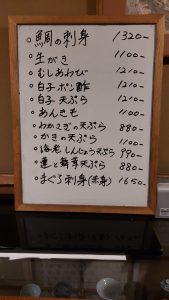 。鯛の刺身 1320-
。生がき 1100-
。むしあわび 1210-
。白子ポン酢 1210-
。白子 天ぷら 1210-
。あんきも 1100-
。わかさぎの天ぷら 880-
。かきの天ぷら 1100-
。海老しんじょう天ぷら 990-
。蓮と舞茸天ぷら 880-
。まぐろ刺身(赤身) 1650-